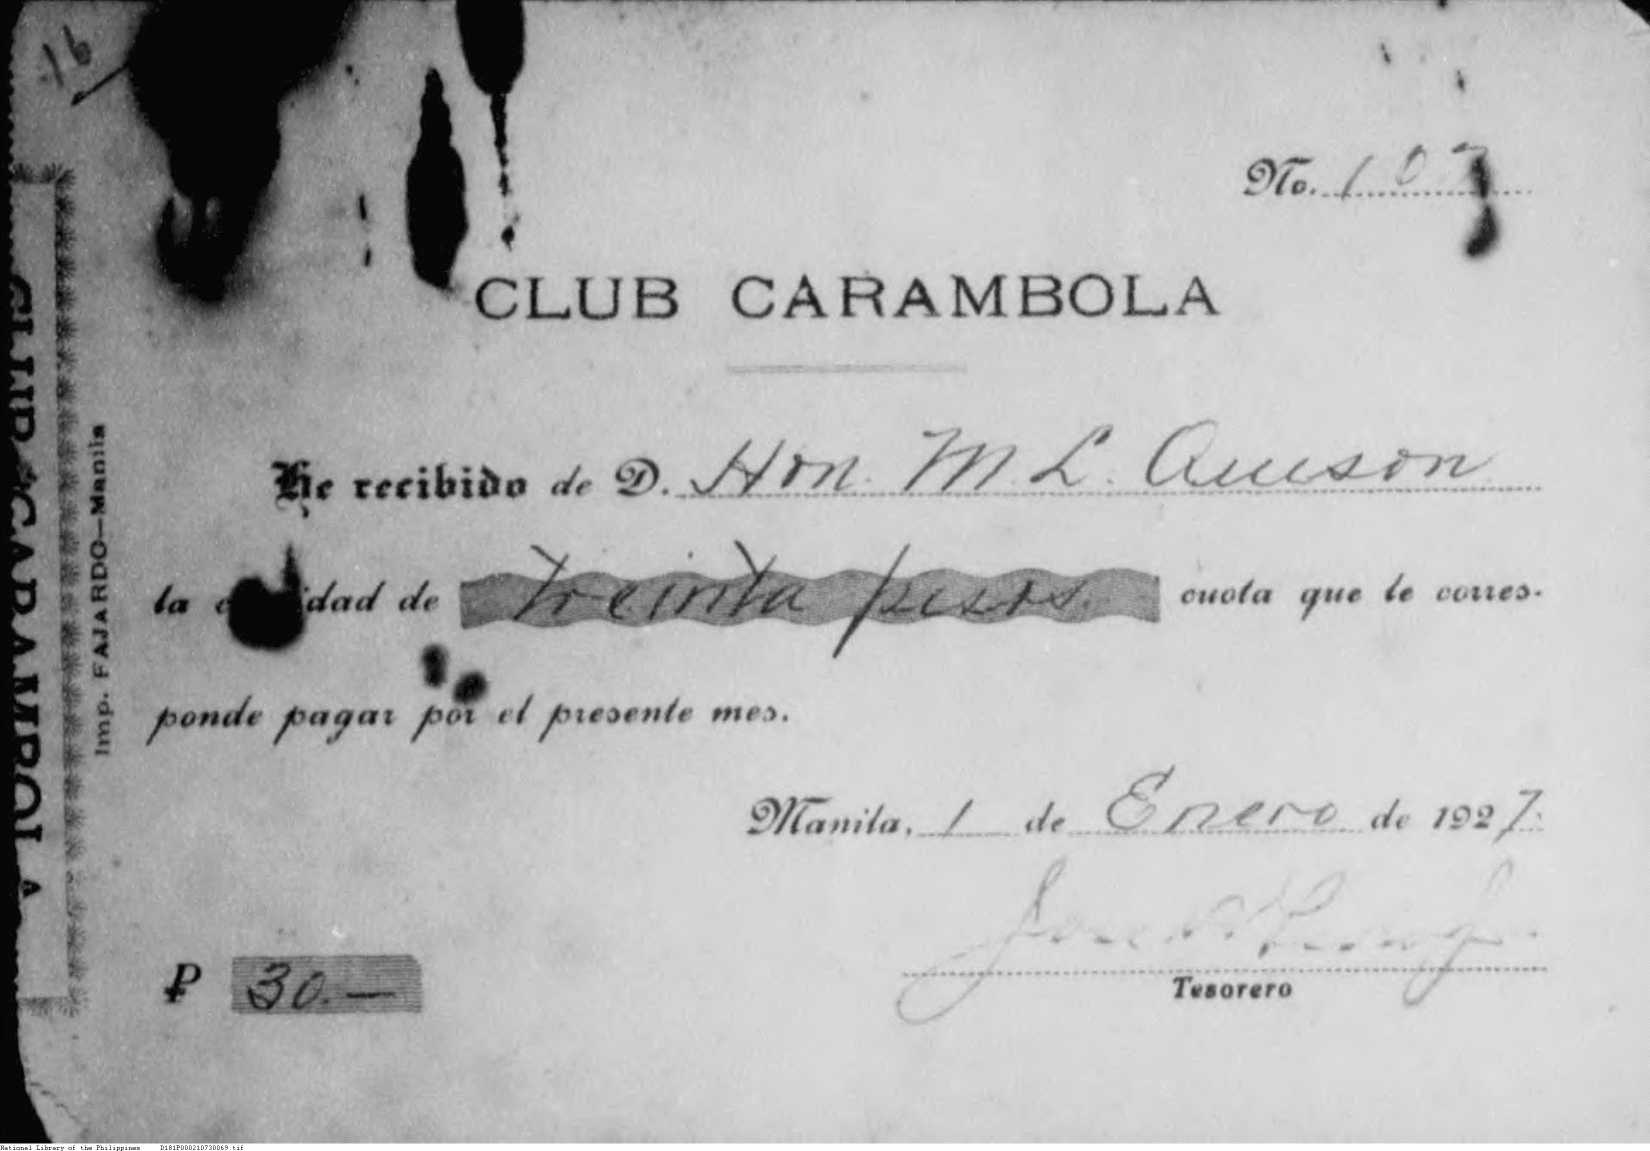 16
No. 107
CLUB CARAMBOLA
He recibido de D. Hon. M. L. Queson
la dad de treinta pesos. cuota que le corres-
ponde pagar por el presente mes.
Manila, 1 de Enero de 1927.
Tesorero
₱ 30.—
CLUB CARAMBOLA
Imp. FAJARDO—Manila
National Library of the Philippines D181P000210730069.tif